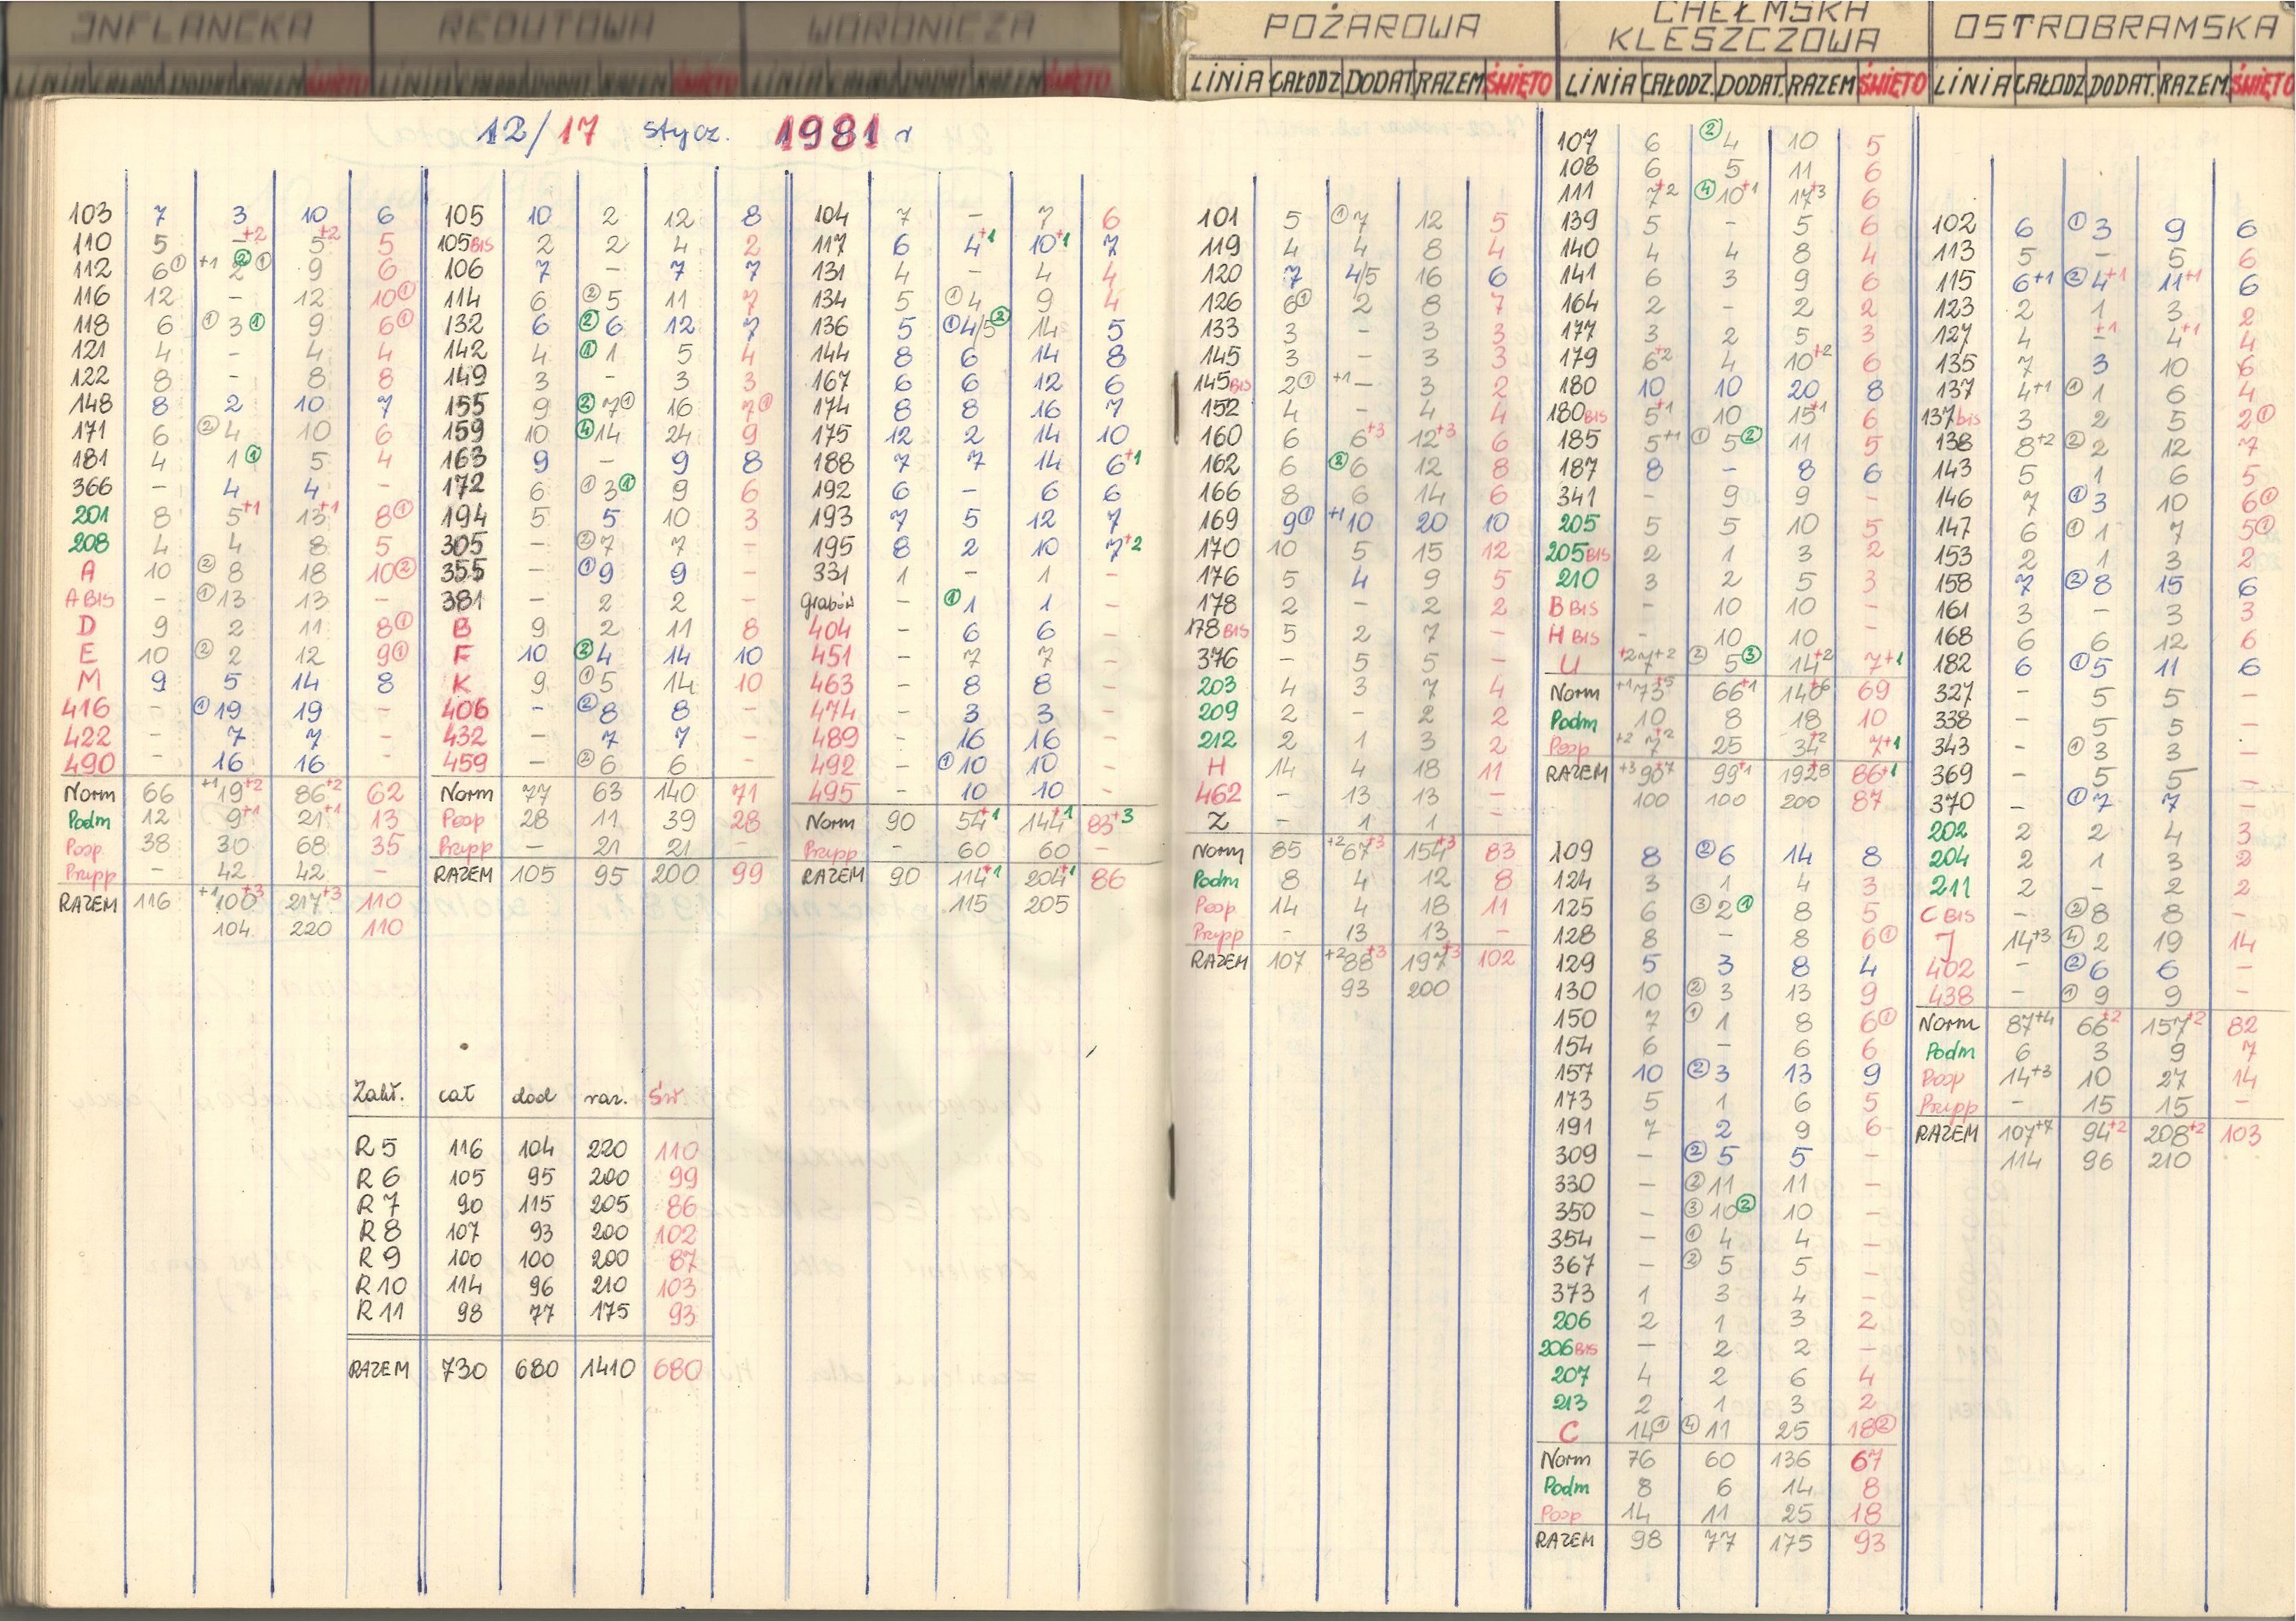 INFLANCKA
LINIA CAŁODZ DODAT RAZEM ŚWIĘTO
REDUTOWA
LINIA CAŁODZ DODAT RAZEM ŚWIĘTO
WORONICZA
LINIA CAŁODZ DODAT RAZEM ŚWIĘTO
POŻAROWA
LINIA CAŁODZ DODAT RAZEM ŚWIĘTO
CHEŁMSKA
KLESZCZOWA
LINIA CAŁODZ. DODAT. RAZEM ŚWIĘTO
OSTROBRAMSKA
LINIA CAŁODZ DODAT. RAZEM. ŚWIĘTO
12/17 stycz. 1981 r
103 7 3 10 6
110 5 -+2 5+2 5
112 6① +1 2②① 9 6
116 12 - 12 10①
118 6 ①3① 9 6①
121 4 - 4 4
122 8 - 8 8
148 8 2 10 7
171 6 ②4 10 6
181 4 1① 5 4
366 - 4 4 -
201 8 5+1 13+1 8①
208 4 4 8 5
A 10 ②8 18 10②
A BIS - ①13 13 -
D 9 2 11 8①
E 10 ②2 12 9①
M 9 5 14 8
416 - ①19 19 -
422 - 7 7 -
490 - 16 16 -
Norm 66 +1 19+2 86+2 62
Podm 12 9+1 21+1 13
Posp. 38 30 68 35
Przypp - 42 42 -
RAZEM 116 +1 100+3 217+3 110
104 220 110
105 10 2 12 8
105 BIS 2 2 4 2
106 7 - 7 7
114 6 ②5 11 7
132 6 ②6 12 7
142 4 ①1 5 4
149 3 - 3 3
155 9 ②7① 16 7①
159 10 ④14 24 9
163 9 - 9 8
172 6 ①3① 9 6
194 5 5 10 3
305 - ②7 7 -
355 - ①9 9 -
381 - 2 2 -
B 9 2 11 8
F 10 ②4 14 10
K 9 ①5 14 10
406 - ②8 8 -
432 - 7 7 -
459 - ②6 6 -
Norm 77 63 140 71
Posp 28 11 39 28
Przypp - 21 21 -
RAZEM 105 95 200 99
104 7 - 7 6
117 6 4+1 10+1 7
131 4 - 4 4
134 5 ①4 9 4
136 5 ①4/5② 14 5
144 8 6 14 8
167 6 6 12 6
174 8 8 16 7
175 12 2 14 10
188 7 7 14 6+1
192 6 - 6 6
193 7 5 12 7
195 8 2 10 7+2
331 1 - 1 -
Grabów - ①1 1 -
404 - 6 6 -
451 - 7 7 -
463 - 8 8 -
474 - 3 3 -
489 - 16 16 -
492 - ①10 10 -
495 - 10 10 -
Norm 90 54+1 144+1 83+3
Przypp - 60 60 -
RAZEM 90 114+1 204+1 86
115 205
Zakł. cał dod raz. Św
R 5 116 104 220 110
R 6 105 95 200 99
R 7 90 115 205 86
R 8 107 93 200 102
R 9 100 100 200 87
R 10 114 96 210 103
R 11 98 77 175 93
RAZEM 730 680 1410 680
101 5 ①7 12 5
119 4 4 8 4
120 7 4/5 16 6
126 6① 2 8 7
133 3 - 3 3
145 3 - 3 3
145 BIS 2① +1 - 3 2
152 4 - 4 4
160 6 6+3 12+3 6
162 6 ②6 12 8
166 8 6 14 6
169 9① +1 10 20 10
170 10 5 15 12
176 5 4 9 5
178 2 - 2 2
178 BIS 5 2 7 -
376 - 5 5 -
203 4 3 7 4
209 2 - 2 2
212 2 1 3 2
H 14 4 18 11
462 - 13 13 -
Z - 1 1 -
Norm 85 +2 67+3 154+3 83
Podm 8 4 12 8
Posp 14 4 18 11
Przypp - 13 13 -
RAZEM 107 +2 88+3 197+3 102
93 200
107 6 ②4 10 5
108 6 5 11 6
111 7+2 ④10+1 17+3 6
139 5 - 5 6
140 4 4 8 4
141 6 3 9 6
164 2 - 2 2
177 3 2 5 3
179 6+2 4 10+2 6
180 10 10 20 8
180 BIS 5+1 10 15+1 6
185 5+1 ①5② 11 5
187 8 - 8 6
341 - 9 9 -
205 5 5 10 5
205 BIS 2 1 3 2
210 3 2 5 3
B BIS - 10 10 -
H BIS - 10 10 -
U +2 7+2 ②5③ 14+2 7+1
Norm +1 73+5 66+1 140+6 69
Podm 10 8 18 10
Posp +2 7+2 25 34+2 7+1
RAZEM +3 90+7 99+1 192+8 86+1
100 100 200 87
109 8 ②6 14 8
124 3 1 4 3
125 6 ③2① 8 5
128 8 - 8 6①
129 5 3 8 4
130 10 ②3 13 9
150 7 ①1 8 6①
154 6 - 6 6
157 10 ②3 13 9
173 5 1 6 5
191 7 2 9 6
309 - ②5 5 -
330 - ②11 11 -
350 - ③10② 10 -
354 - ①4 4 -
367 - ②5 5 -
373 1 3 4 -
206 2 1 3 2
206 BIS - 2 2 -
207 4 2 6 4
213 2 1 3 2
C 14① ④11 25 18②
Norm 76 60 136 67
Podm 8 6 14 8
Posp 14 11 25 18
RAZEM 98 77 175 93
102 6 ①3 9 6
113 5 - 5 6
115 6+1 ②4+1 11+1 6
123 2 1 3 2
127 4 -+1 4+1 4
135 7 3 10 6
137 4+1 ①1 6 4
137 bis 3 2 5 2①
138 8+2 ②2 12 7
143 5 1 6 5
146 7 ①3 10 6①
147 6 ①1 7 5①
153 2 1 3 2
158 7 ②8 15 6
161 3 - 3 3
168 6 6 12 6
182 6 ①5 11 6
327 - 5 5 -
338 - 5 5 -
343 - ①3 3 -
369 - 5 5 -
370 - ①7 7 -
202 2 2 4 3
204 2 1 3 2
211 2 - 2 2
C BIS - ②8 8 -
J 14+3 ④2 19 14
402 - ②6 6 -
438 - ①9 9 -
Norm 87+4 66+2 157+2 82
Podm 6 3 9 7
Posp 14+3 10 27 14
Przypp - 15 15 -
RAZEM 107+7 94+2 208+2 103
114 96 210